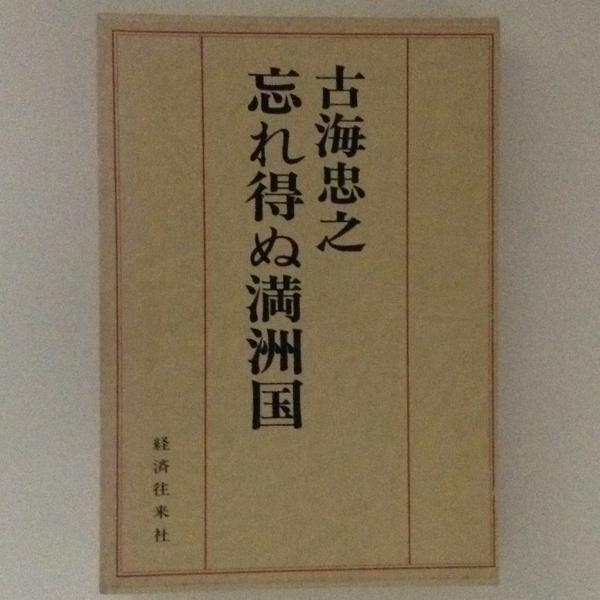 古海忠之
忘れ得ぬ満洲国
経済往来社